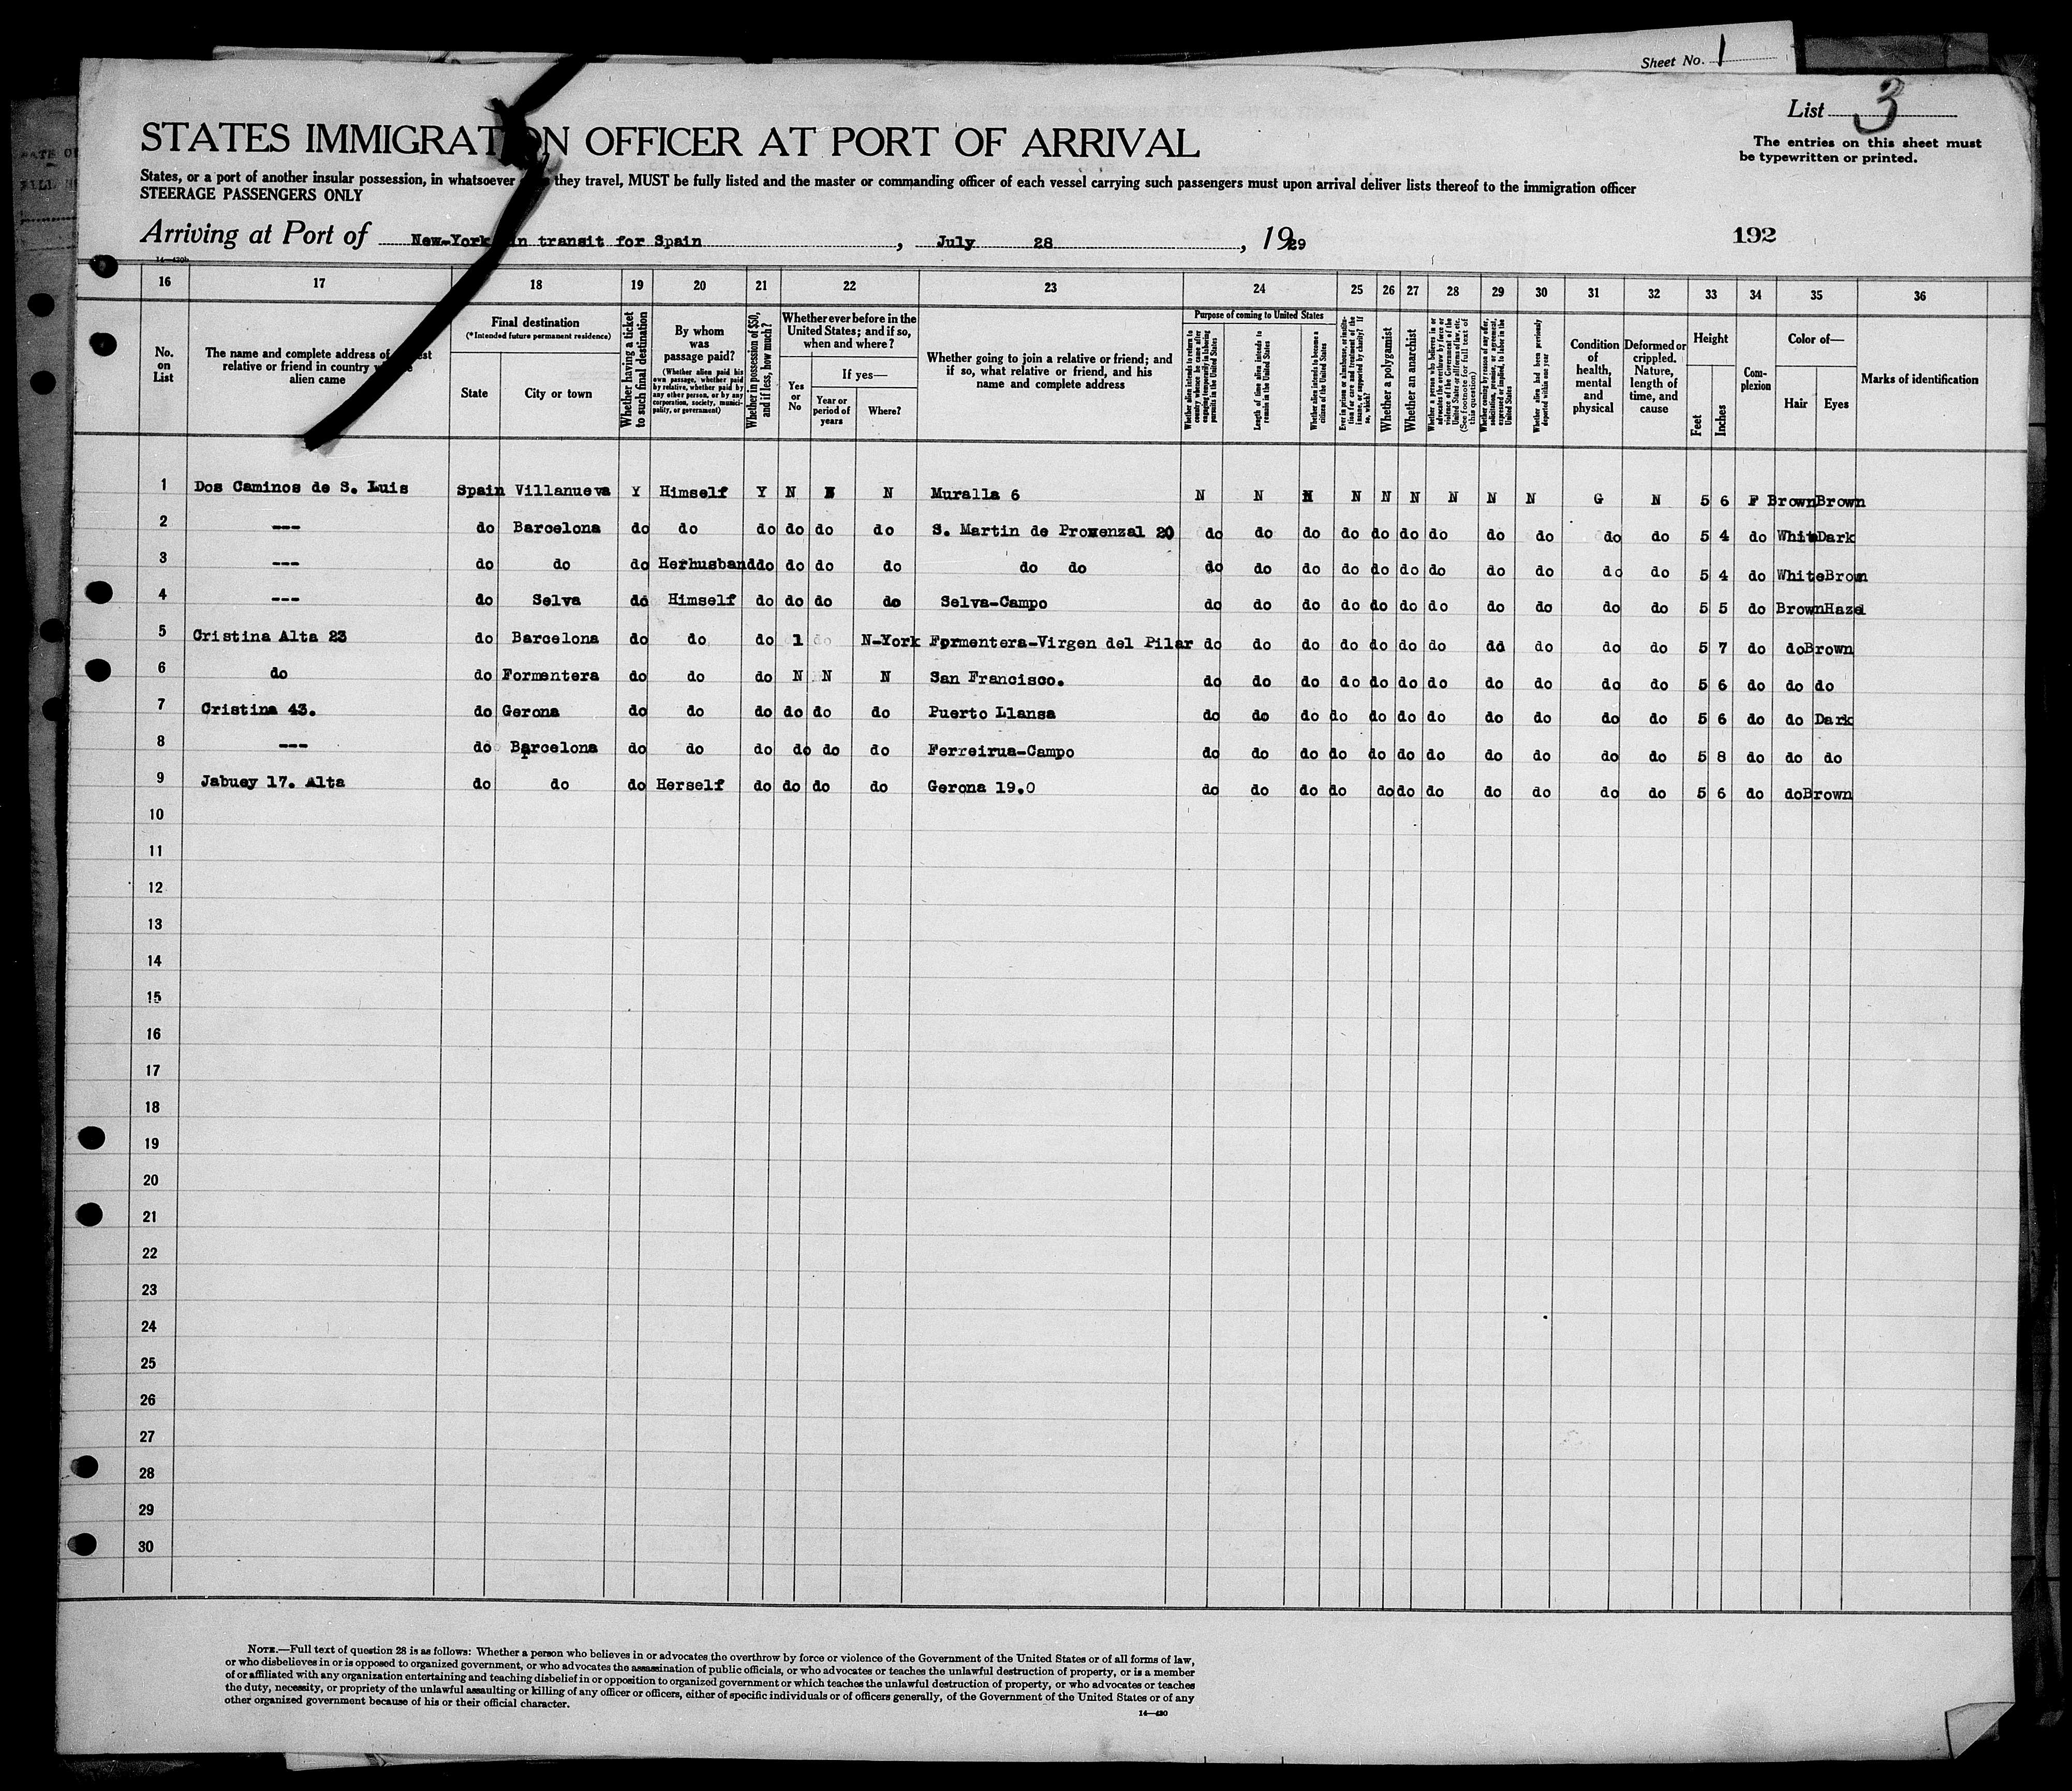 Sheet No. 1
List 3
STATES IMMIGRATION OFFICER AT PORT OF ARRIVAL
The entries on this sheet must
be typewritten or printed.
States, or a port of another insular possession, in whatsoever they travel, MUST be fully listed and the master or commanding officer of each vessel carrying such passengers must upon arrival deliver lists thereof to the immigration officer
STEERAGE PASSENGERS ONLY
Arriving at Port of New-York in transit for Spain , July 28 , 1929 192
16 17 18 19 20 21 22 23 24 25 26 27 28 29 30 31 32 33 34 35 36
No. on List
The name and complete address of relative or friend in country alien came
Final destination
(*Intended future permanent residence)
State
City or town
Whether having a ticket to such final destination
By whom was passage paid?
(Whether alien paid his own passage, whether paid by relative, whether paid by any other person, or by any corporation, society, municipality, or government)
Whether in possession of $50, and if less, how much?
Whether ever before in the United States; and if so, when and where?
Yes or No
If yes—
Year or period of years
Where?
Whether going to join a relative or friend; and if so, what relative or friend, and his name and complete address
Purpose of coming to United States
Whether alien intends to return to country whence he came after engaging temporarily in laboring pursuits in the United States
Length of time alien intends to remain in the United States
Whether alien intends to become a citizen of the United States
Ever in prison or almshouse, or institution for care and treatment of the insane, or supported by charity? If so, which?
Whether a polygamist
Whether an anarchist
Whether a person who believes in or advocates the overthrow by force or violence of the Government of the United States or all forms of law, etc. (See footnote for full text of this question)
Whether coming by reason of any offer, solicitation, promise, or agreement, expressed or implied, to labor in the United States
Whether alien had been previously deported within one year
Condition of health, mental and physical
Deformed or crippled. Nature, length of time, and cause
Height
Feet
Inches
Complexion
Color of—
Hair
Eyes
Marks of identification
1 Dos Caminos de S. Luis Spain Villanueva Y Himself Y N N N Muralla 6 N N N N N N N N N G N 5 6 F Brown Brown
2 --- do Barcelona do do do do do do S. Martin de Promenzal 20 do do do do do do do do do do do 5 4 do White Dark
3 --- do do do Herhusband do do do do do do do do do do do do do do do do do 5 4 do White Brown
4 --- do Selva do Himself do do do do Selva-Campo do do do do do do do do do do do 5 5 do Brown Hazel
5 Cristina Alta 23 do Barcelona do do do 1 do N-York Formentera-Virgen del Pilar do do do do do do do do do do do 5 7 do do Brown
6 do do Formentera do do do N N N San Francisco. do do do do do do do do do do do 5 6 do do do
7 Cristina 43. do Gerona do do do do do do Puerto Llansa do do do do do do do do do do do 5 6 do do Dark
8 --- do Barcelona do do do do do do Ferreirua-Campo do do do do do do do do do do do 5 8 do do do
9 Jabuey 17. Alta do do do Herself do do do do Gerona 19.0 do do do do do do do do do do do 5 6 do do Brown
10
11
12
13
14
15
16
17
18
19
20
21
22
23
24
25
26
27
28
29
30
NOTE.—Full text of question 28 is as follows: Whether a person who believes in or advocates the overthrow by force or violence of the Government of the United States or of all forms of law,
or who disbelieves in or is opposed to organized government, or who advocates the assassination of public officials, or who advocates or teaches the unlawful destruction of property, or is a member
of or affiliated with any organization entertaining and teaching disbelief in or opposition to organized government or which teaches the unlawful destruction of property, or who advocates or teaches
the duty, necessity, or propriety of the unlawful assaulting or killing of any officer or officers, either of specific individuals or of officers generally, of the Government of the United States or of any
other organized government because of his or their official character.
14—430